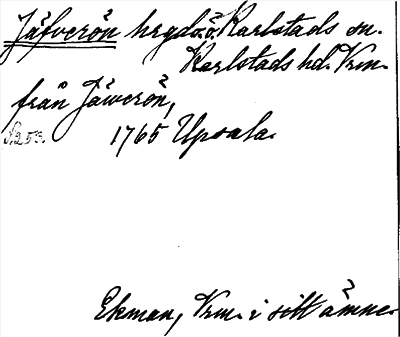 Jäfverön hrgd o. ö. Karlstads sn.
Karlstads hd. Vrm.
från Jäwerön,
S. 253. 1765 Upsala.
Ekman, Vrm. i sitt ämne.